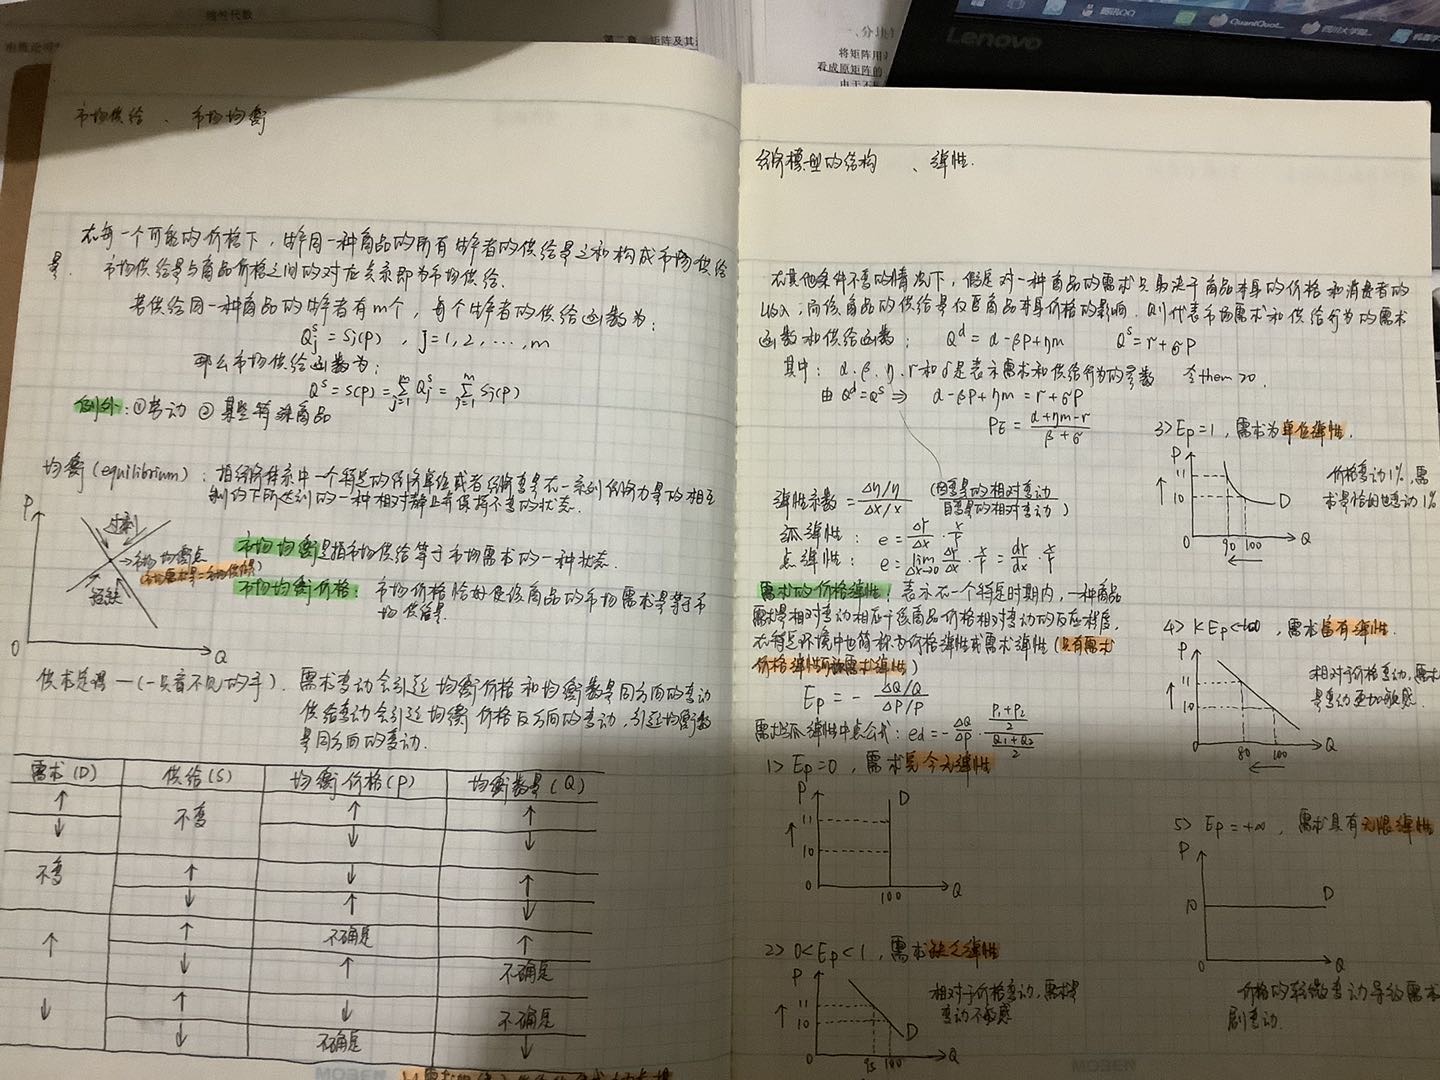 线性代数
第二章 矩阵及其
一、分块
将矩阵用
看成原矩阵的
由于不
Lenovo
腾讯QQ
QuantQuot...
四川大学
市场供给、市场均衡
在每一个可能的价格下，生产同一种商品的所有生产者的供给量之和构成市场供给
量. 市场供给量与商品价格之间的对应关系即为市场供给.
若供给同一种商品的生产者有m个，每个生产者的供给函数为：
Qⱼˢ = Sⱼ(P)，j=1, 2, ..., m
那么市场供给函数为：
Qˢ = S(P) = Σⱼ₌₁ᵐ Qⱼˢ = Σⱼ₌₁ᵐ Sⱼ(P)
例外：①劳动 ②某些特殊商品
均衡(equilibrium)：指经济体系中一个特定的经济单位或者经济变量在一系列经济力量的相互
制约下所达到的一种相对静止并保持不变的状态.
P
过剩
市场均衡点
(市场需求量=市场供给量)
短缺
O
Q
市场均衡是指市场供给等于市场需求的一种状态.
市场均衡价格：市场价格恰好使该商品的市场需求量等于市
场供给量.
供求定理—(一只看不见的手). 需求变动会引起均衡价格和均衡数量同方向的变动
供给变动会引起均衡价格反方向的变动，引起均衡数
量同方向的变动.
需求(D) 供给(S) 均衡价格(P) 均衡数量(Q)
↑ 不变 ↑ ↑
↓ ↓ ↓
不变 ↑ ↓ ↑
↓ ↑ ↓
↑ ↑ 不确定 ↑
↓ ↑ 不确定
↓ ↑ ↓ 不确定
↓ 不确定 ↓
MOBEN
经济模型的结构、弹性.
在其他条件不变的情况下，假定对一种商品的需求只取决于商品本身的价格和消费者的
收入；而该商品的供给量仅受商品本身价格的影响. 则代表市场需求和供给行为的需求
函数和供给函数： Qᵈ = α-βP+ηm Qˢ = r+σP
其中：α.β.η.r和σ是表示需求和供给行为的参数 令them>0.
由 Qᵈ=Qˢ ⇒ α-βP+ηm = r+σP
P_E = (α+ηm-r)/(β+σ)
弹性系数 = (Δy/y)/(Δx/x) (因变量的相对变动/自变量的相对变动)
弧弹性： e = ΔY/Δx · x/Y
点弹性： e = lim(Δx→0) ΔY/Δx · x/Y = dY/dx · x/Y
需求的价格弹性：表示在一个特定时期内，一种商品
需求量相对变动相应于该商品价格相对变动的反应程度.
在特定环境中也简称为价格弹性或需求弹性 (只有需求
价格弹性可称需求弹性)
Eₚ = - (ΔQ/Q)/(ΔP/P)
需求弧弹性中点公式：ed = - ΔQ/ΔP · ((P₁+P₂)/2)/((Q₁+Q₂)/2)
1> Eₚ=0，需求完全无弹性
P
D
11
10
0
100
Q
2> 0<Eₚ<1，需求缺乏弹性
P
11
10
0
95 100
D
Q
相对于价格变动，需求量
变动不敏感
3> Eₚ=1，需求为单位弹性.
P
11
10
D
0
90 100
Q
价格变动1%，需
求量恰好也变动1%
4> 1<Eₚ<+∞，需求富有弹性.
P
11
10
0
80 100
Q
相对于价格变动，需求
量变动更加敏感.
5> Eₚ=+∞，需求具有无限弹性
P
10
D
0
Q
价格的轻微变动导致需求
剧变动.
MOBEN